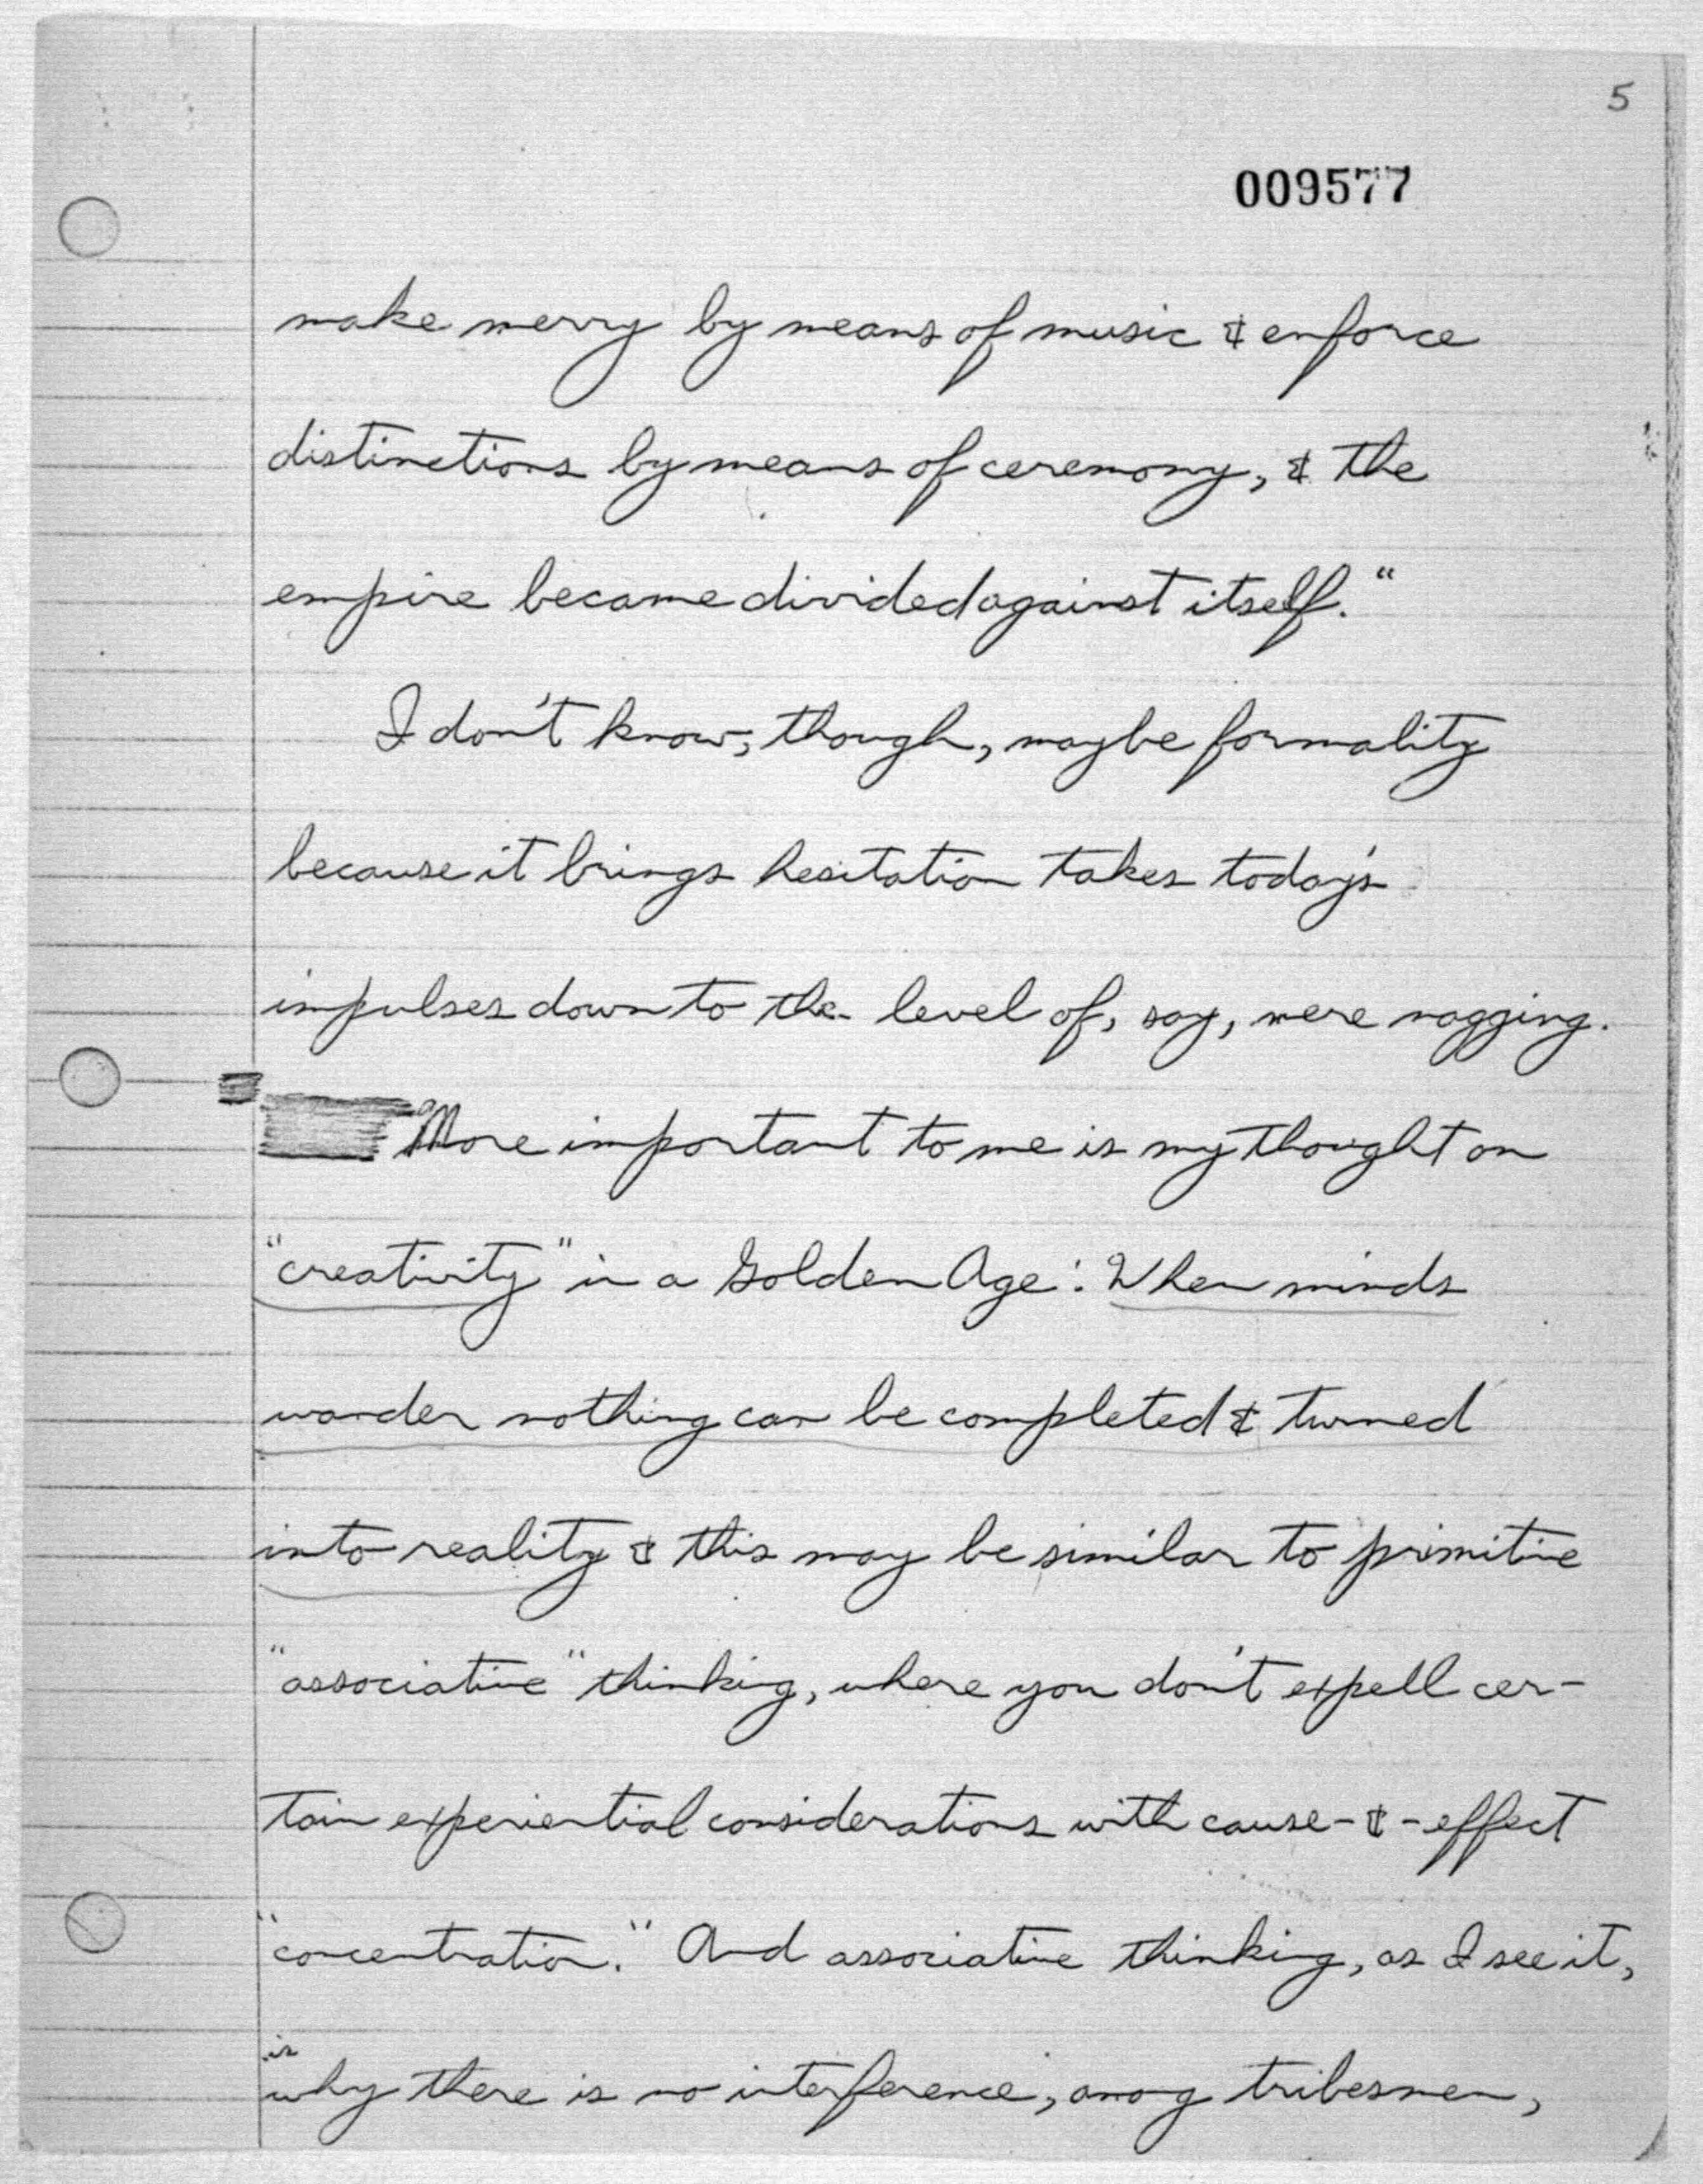 5
009577
make merry by means of music & enforce
distinctions by means of ceremony, & the
empire became divided against itself."
I don't know, though, maybe formality
because it brings hesitation takes today's
impulses down to the level of, say, mere nagging.
More important to me is my thought on
"creativity" in a Golden Age: When minds
wander nothing can be completed & turned
into reality & this may be similar to primitive
"associative" thinking, where you don't expell cer-
tain experiential considerations with cause-&-effect
"concentration." And associative thinking, as I see it,
is
why there is no interference, among tribesmen,